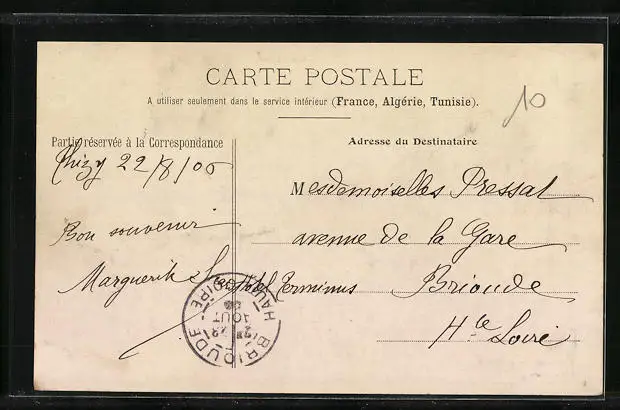 CARTE POSTALE
A utiliser seulement dans le service intérieur (France, Algérie, Tunisie).
10
Partie réservée à la Correspondance
Thizy 22/8/06
Bon souvenir
Marguerite
Adresse du Destinataire
Mesdemoiselles Pressat
avenue de la Gare
Hôtel Terminus Brioude
Hte Loire
BRIOUDE
HAUTE LOIRE
22
AOUT
06